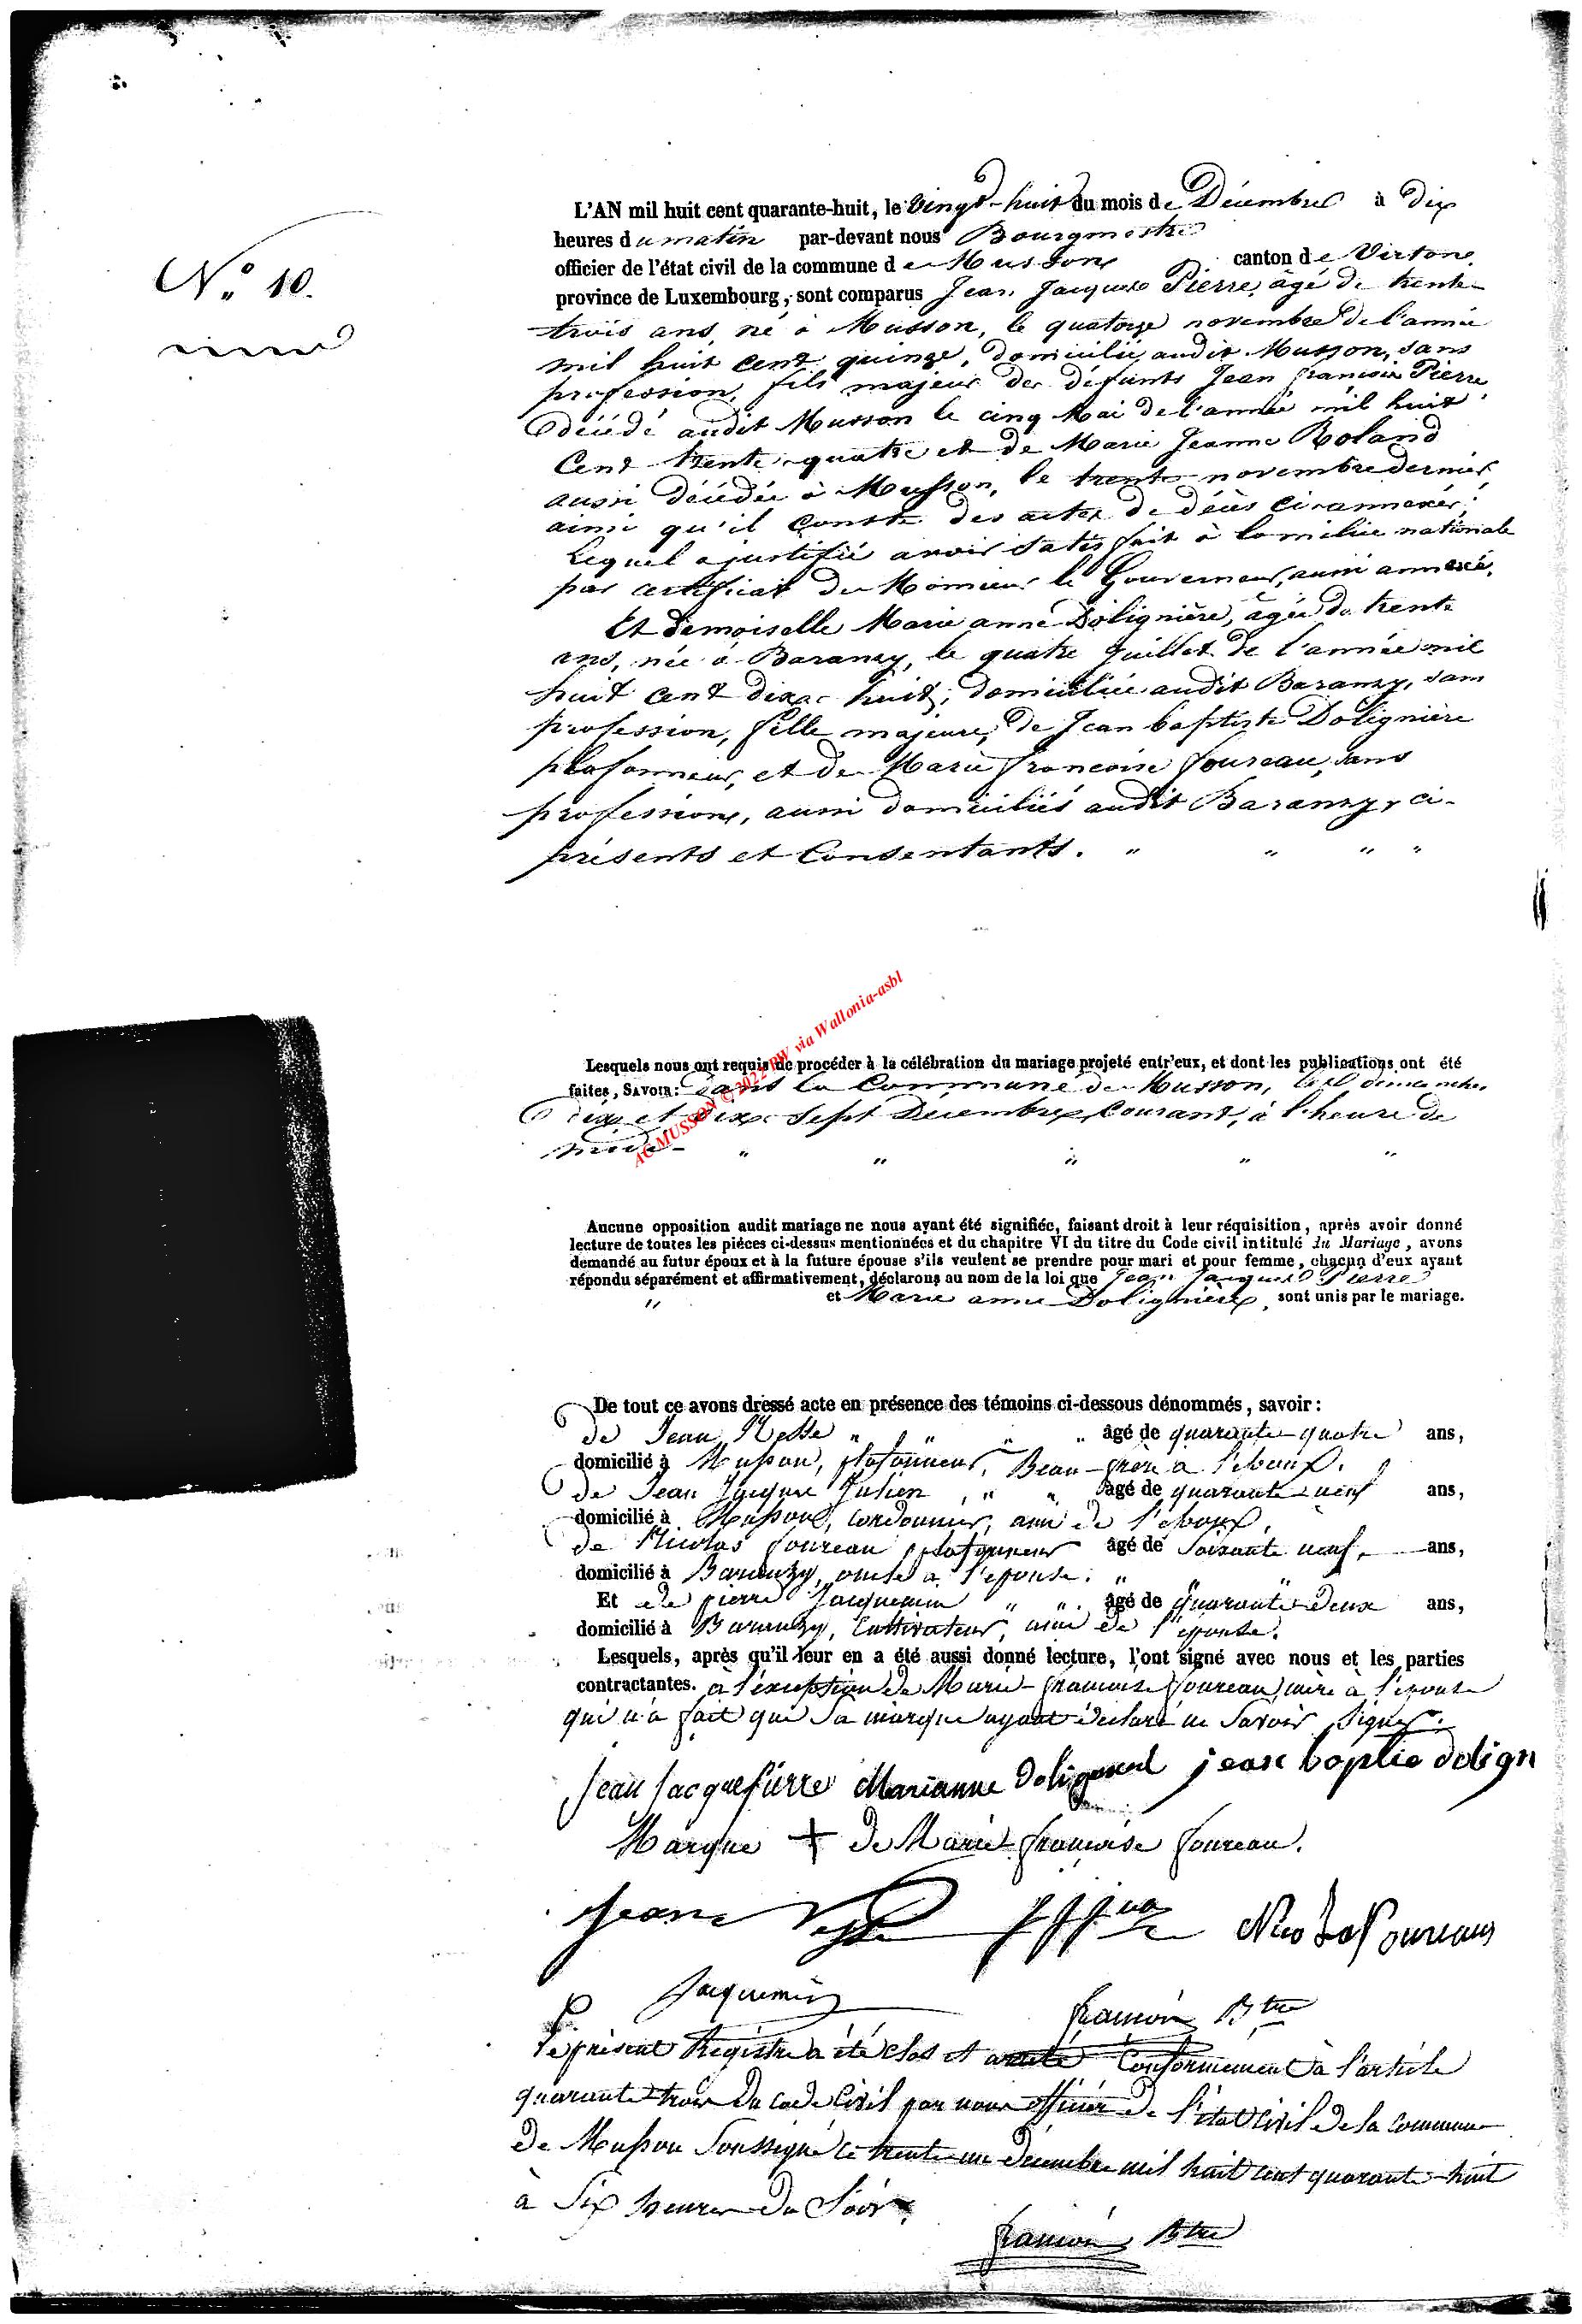 L'AN mil huit cent quarante-huit, le vingt-huit du mois de Décembre à dix
heures du matin par-devant nous Bourgmestre
N° 10.
officier de l'état civil de la commune de Musson canton de Virton
province de Luxembourg, sont comparus Jean Jacques Pierre, âgé de trente
trois ans, né à Musson, le quatorze novembre de l'année
mil huit cent quinze, domicilié audit Musson, sans
profession, fils majeur des défunts Jean françois Pierre
décédé audit Musson le cinq Mai de l'année mil huit
Cent trente-quatre et de Marie Jeanne Roland
aussi décédée à Musson, le trente novembre dernier,
ainsi qu'il conste des actes de décès ci-annexés;
Lequel a justifié avoir satisfait à la milice nationale
par certificat de Monsieur le Gouverneur, aussi annexé.
Et demoiselle Marie anne Dolignière, âgée de trente
ans, née à Baranzy, le quatre Juillet de l'année mil
huit cent dix-huit, domiciliée audit Baranzy, sans
profession, fille majeure, de Jean baptiste Dolignière
plafonneur, et de Marie françoise foureau, sans
profession, aussi domiciliés audit Baranzy, ci-
présents et Consentants. " " " "
Lesquels nous ont requis de procéder à la célébration du mariage projeté entr'eux, et dont les publications ont été
faites, SAVOIR: dans la Commune de Musson, les dimanches
dix et dix-sept Décembre Courant, à l'heure de
midi- " " " " "
AC MUSSON © 2022 RW via Wallonia-asbl
Aucune opposition audit mariage ne nous ayant été signifiée, faisant droit à leur réquisition, après avoir donné
lecture de toutes les pièces ci-dessus mentionnées et du chapitre VI du titre du Code civil intitulé du Mariage, avons
demandé au futur époux et à la future épouse s'ils veulent se prendre pour mari et pour femme, chacun d'eux ayant
répondu séparément et affirmativement, déclarons au nom de la loi que Jean Jacques Pierre
" et Marie anne Dolignière, sont unis par le mariage.
De tout ce avons dressé acte en présence des témoins ci-dessous dénommés, savoir:
de Jean " " " âgé de quarante-quatre ans,
domicilié à Musson, plafonneur, Beau-frère à l'époux.
de Jean Jacque Julien, " " âgé de quarante-neuf ans,
domicilié à Musson, cordonnier, ami de l'époux,
de Nicolas foureau, plafonneur âgé de soixante neuf, ans,
domicilié à Baranzy, oncle à l'épouse. " " "
Et de pierre Jacquemin " " âgé de quarante-deux ans,
domicilié à Baranzy, Cultivateur, ami de l'épouse.
Lesquels, après qu'il leur en a été aussi donné lecture, l'ont signé avec nous et les parties
contractantes. à l'exception de Marie-françoise foureau mère à l'épouse
qui n'a fait que sa marque ayant déclaré ne savoir signer.
Jean Jacque pierre Marianne jean baptie dolign
Marque + de Marie-françoise foureau.
Jean Nicolas foureaux
Jacquemin
françois Btre
Le présent Registre a été clos et arrêté Conformément à l'article
quarante-trois du code Civil par nous officier de l'état civil de la commune
de Musson Soussigné le trente-un décembre mil huit cent quarante-huit
à Six heures du Soir.
françois Btre